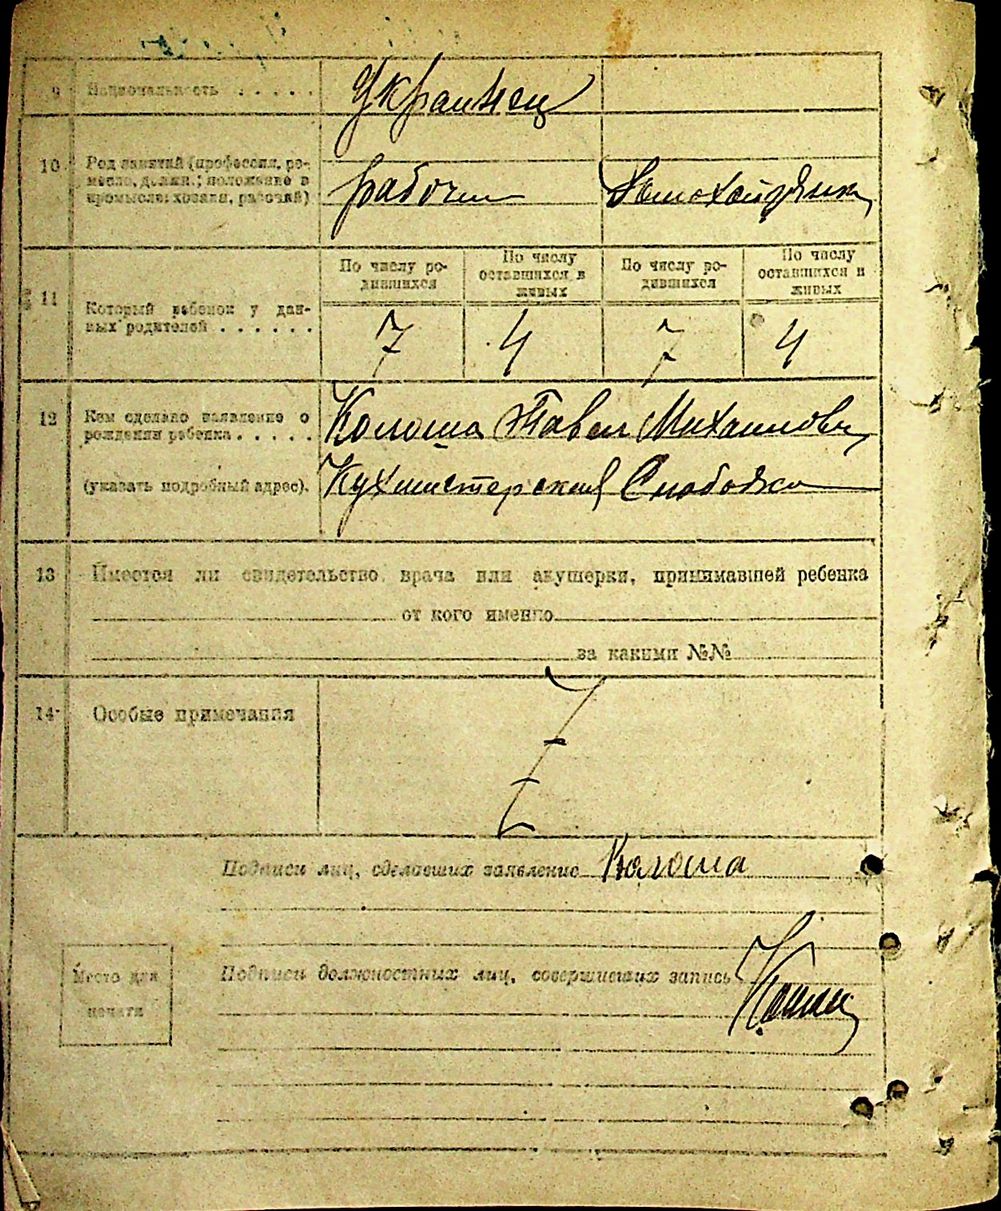 9 Национальность . . . . . Украинец
10 Род занятий (профессия, ре-
месло, должн.; положение в
промысле: хозяин, рабочий) рабочий Домохозяйка
По числу ро- По числу По числу ро- По числу
дившихся оставшихся в дившихся оставшихся в
живых живых
11 Который ребенок у дан-
ных родителей . . . . . . 7 4 7 4
12 Кем сделано заявление о Колоша Павел Михайлович
рождении ребенка . . . . .
(указать подробный адрес). Кухмистерская Слободка
13 Имеется ли свидетельство врача или акушерки, принимавшей ребенка
от кого именно
за какими №№
14 Особые примечания
Подписи лиц, сделавших заявление Колоша
Место для Подписи должностных лиц, совершивших запись
печати